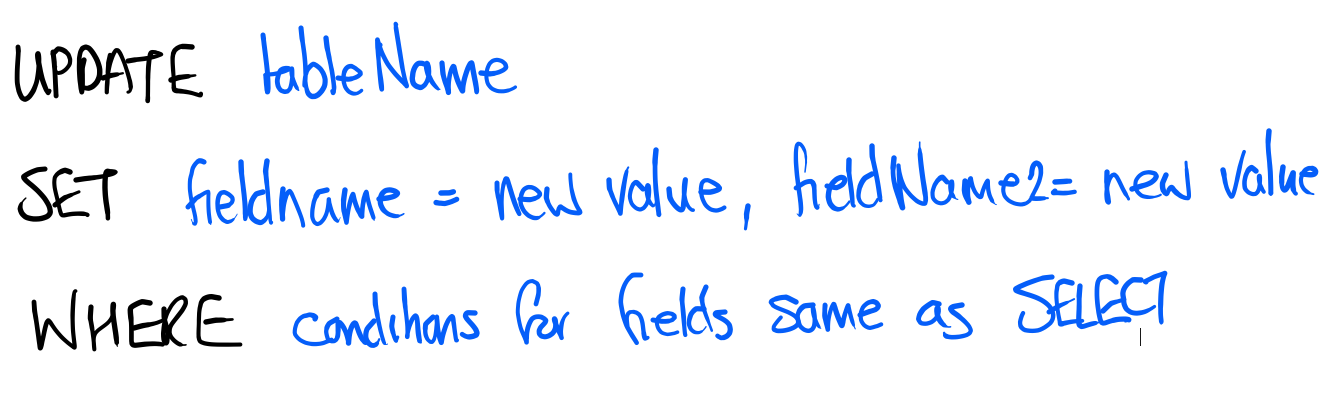 UPDATE tableName
SET fieldname = new value, fieldName2= new value
WHERE conditions for fields same as SELECT